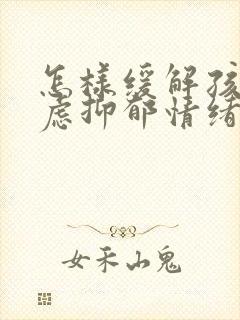 怎样缓解孩
虑抑郁情绪
女禾山鬼